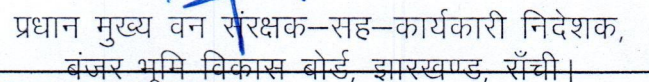 प्रधान मुख्य वन संरक्षक–सह–कार्यकारी निदेशक,
बंजर भूमि विकास बोर्ड, झारखण्ड, राँची।